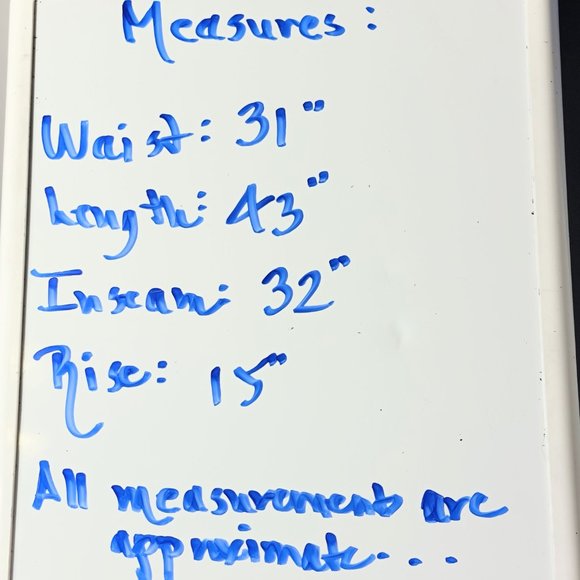 Measures:
Waist: 31"
Length: 43"
Inseam: 32"
Rise: 15"
All measurements are
approximate...